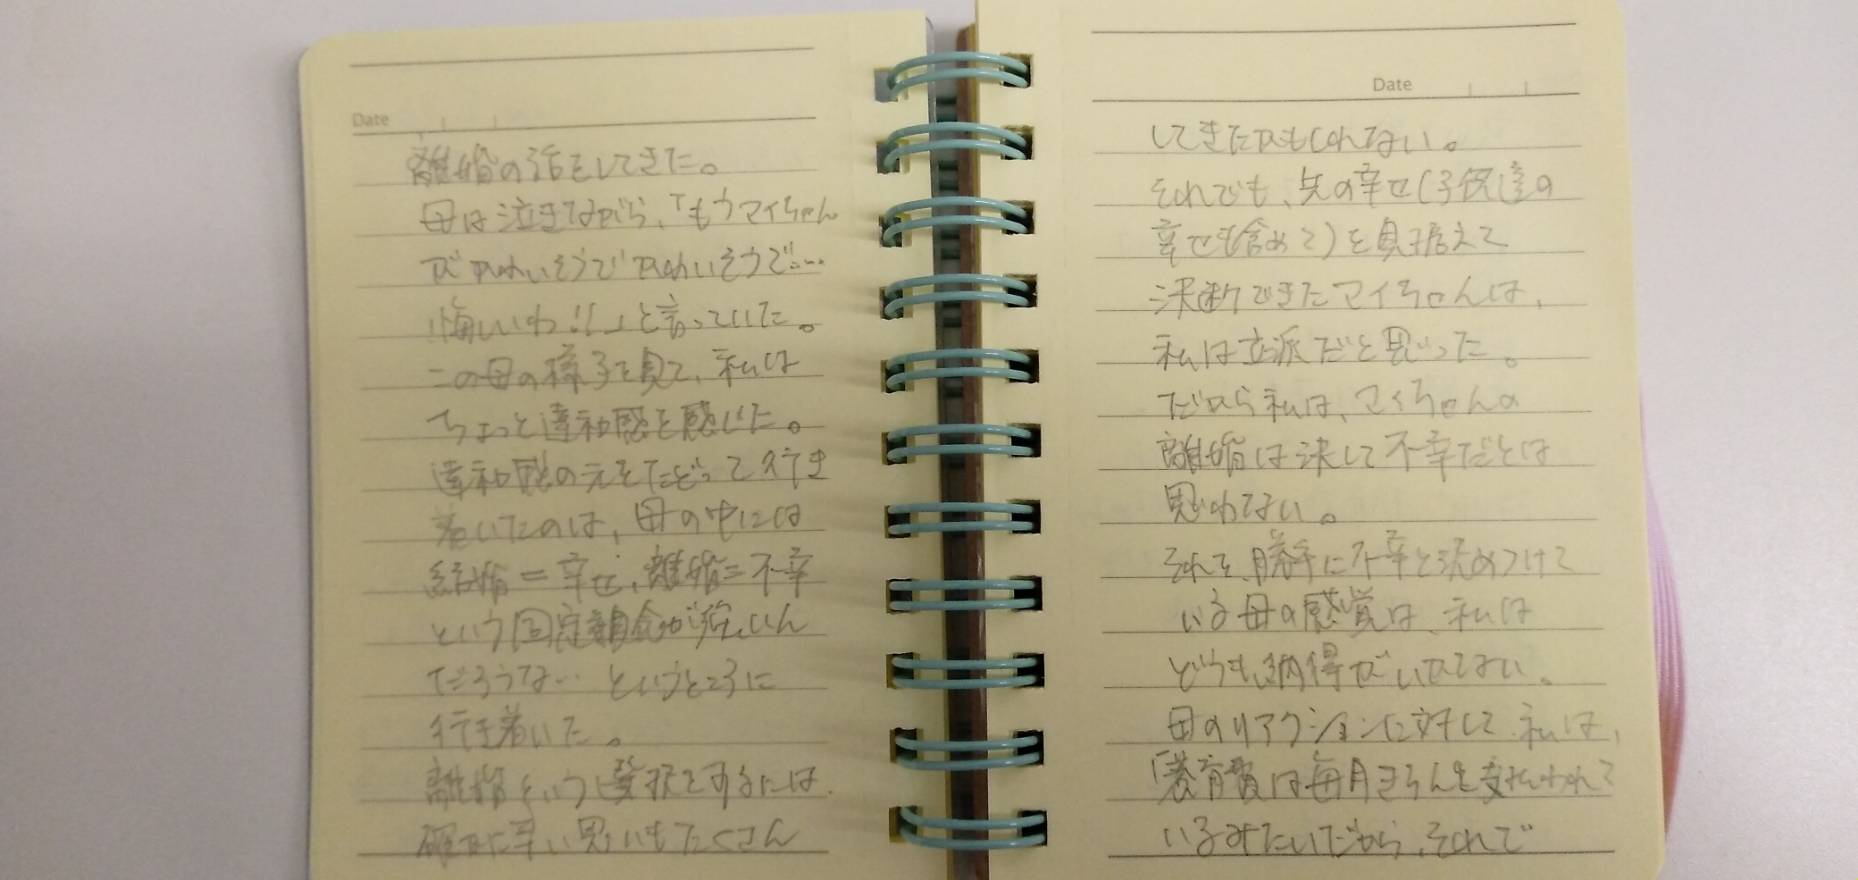 Date
離婚の話をしてきた。
母は泣きながら、「もうマイちゃん
がかわいそうでかわいそうで…
悔しいわ!!」と言っていた。
この母の様子を見て、私は
ちょっと違和感を感じた。
違和感の元をたどって行き
着いたのは、母の中には
結婚=幸せ、離婚=不幸
という固定観念が強いん
だろうな… というところに
行き着いた。
離婚という選択をするには、
確かに辛い思いもたくさん
Date
してきたかもしれない。
それでも、先の幸せ(子供達の
幸せも含めて)を見据えて
決断できたマイちゃんは、
私は立派だと思った。
だから私は、マイちゃんの
離婚は決して不幸だとは
思わない。
それを、勝手に不幸と決めつけて
いる母の感覚は、私は
どうも納得がいかない。
母のリアクションに対して、私は、
「養育費は毎月きちんと支払われて
いるみたいだから、それで